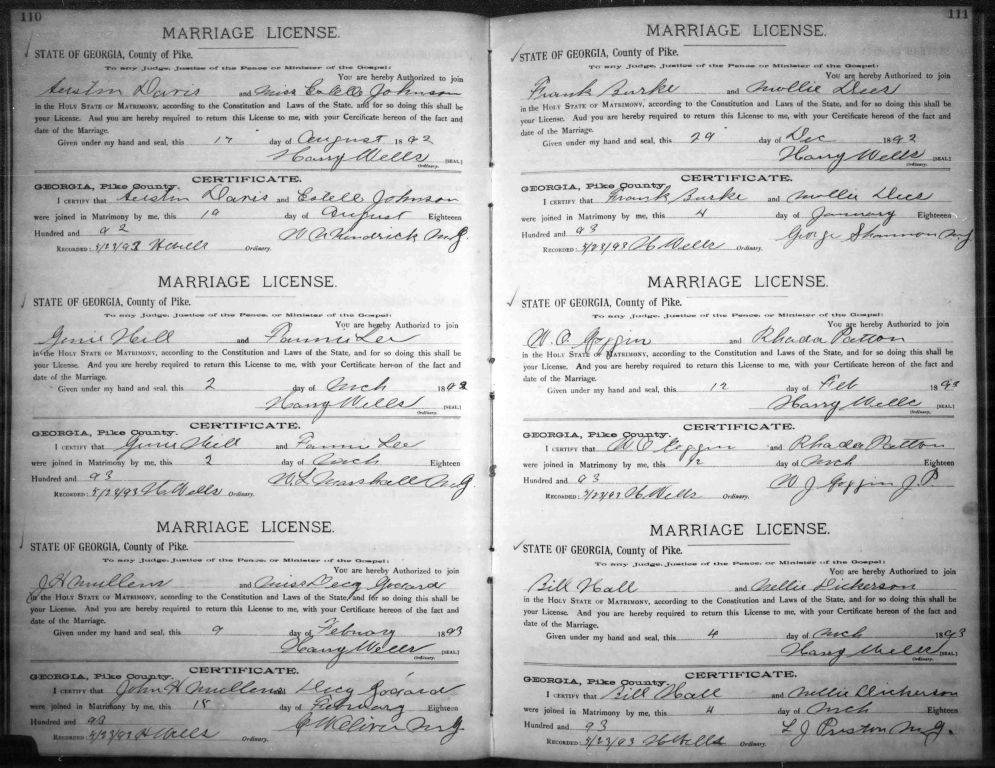 110
MARRIAGE LICENSE.
STATE OF GEORGIA, County of Pike.
To any Judge, Justice of the Peace or Minister of the Gospel:
You are hereby Authorized to join
Austin Davis and Miss Estell Johnson
in the HOLY STATE OF MATRIMONY, according to the Constitution and Laws of the State, and for so doing this shall be
your License. And you are hereby required to return this License to me, with your Certificate hereon of the fact and
date of the Marriage.
Given under my hand and seal, this 17 day of August 1892
Harry Wells [SEAL]
Ordinary.
CERTIFICATE.
GEORGIA, Pike County.
I CERTIFY that Austin Davis and Estell Johnson
were joined in Matrimony by me, this 19 day of August Eighteen
Hundred and 92 Hendrick M.G.
RECORDED: 3/23/93 H Wells Ordinary.
MARRIAGE LICENSE.
STATE OF GEORGIA, County of Pike.
To any Judge, Justice of the Peace, or Minister of the Gospel:
You are hereby Authorized to join
Hill and Fannie Lee
in the HOLY STATE OF MATRIMONY, according to the Constitution and Laws of the State, and for so doing this shall be
your License. And you are hereby required to return this License to me, with your Certificate hereon of the fact and
date of the Marriage.
Given under my hand and seal, this 2 day of Mch 1893
Harry Wells [SEAL.]
Ordinary.
CERTIFICATE.
GEORGIA, Pike County.
I CERTIFY that Hill and Fannie Lee
were joined in Matrimony by me, this 2 day of Mch Eighteen
Hundred and 93 W. L. Marshall M.G.
RECORDED: 3/23/93 H Wells Ordinary.
MARRIAGE LICENSE.
STATE OF GEORGIA, County of Pike.
To any Judge, Justice of the Peace, or Minister of the Gospel:
You are hereby Authorized to join
J H Mullens and Miss Decy
in the HOLY STATE OF MATRIMONY, according to the Constitution and Laws of the State, and for so doing this shall be
your License. And you are hereby required to return this License to me, with your Certificate hereon of the fact and
date of the Marriage.
Given under my hand and seal, this 9 day of February 1893
Harry Wells [SEAL.]
Ordinary.
CERTIFICATE.
GEORGIA, Pike County.
I CERTIFY that John H Mullens and Decy
were joined in Matrimony by me, this 15 day of February Eighteen
Hundred and 93 Oliver M.G.
RECORDED: 3/23/93 H Wells Ordinary.
111
MARRIAGE LICENSE.
STATE OF GEORGIA, County of Pike.
To any Judge, Justice of the Peace or Minister of the Gospel:
You are hereby Authorized to join
Frank Burke and Mollie Dees
in the HOLY STATE OF MATRIMONY, according to the Constitution and Laws of the State, and for so doing this shall be
your License. And you are hereby required to return this License to me, with your Certificate hereon of the fact and
date of the Marriage.
Given under my hand and seal, this 29 day of Dec 1892
Harry Wells [SEAL.]
Ordinary.
CERTIFICATE.
GEORGIA, Pike County.
I CERTIFY that Frank Burke and Mollie Dees
were joined in Matrimony by me, this 4 day of January Eighteen
Hundred and 93 George Shannon M.G.
RECORDED: 3/23/93 H Wells Ordinary.
MARRIAGE LICENSE.
STATE OF GEORGIA, County of Pike.
To any Judge, Justice of the Peace, or Minister of the Gospel:
You are hereby Authorized to join
W. O. Goggin and Rhoda Patton
in the HOLY STATE OF MATRIMONY, according to the Constitution and Laws of the State, and for so doing this shall be
your License. And you are hereby required to return this License to me, with your Certificate hereon of the fact and
date of the Marriage.
Given under my hand and seal, this 12 day of Feb 1893
Harry Wells [SEAL.]
Ordinary.
CERTIFICATE.
GEORGIA, Pike County.
I CERTIFY that W O Goggin and Rhoda Patton
were joined in Matrimony by me, this 12 day of Mch Eighteen
Hundred and 93 W J Goggin J.P.
RECORDED: 3/23/93 H Wells Ordinary.
MARRIAGE LICENSE.
STATE OF GEORGIA, County of Pike.
To any Judge, Justice of the Peace, or Minister of the Gospel:
You are hereby Authorized to join
Bill Hall and Nellie Dickerson
in the HOLY STATE OF MATRIMONY, according to the Constitution and Laws of the State, and for so doing this shall be
your License. And you are hereby required to return this License to me, with your Certificate hereon of the fact and
date of the Marriage.
Given under my hand and seal, this 4 day of Mch 1893
Harry Wells [SEAL.]
Ordinary.
CERTIFICATE.
GEORGIA, Pike County.
I CERTIFY that Bill Hall and Nellie Dickerson
were joined in Matrimony by me, this 4 day of Mch Eighteen
Hundred and 93 L J Preston M.G.
RECORDED: 3/23/93 H Wells Ordinary.